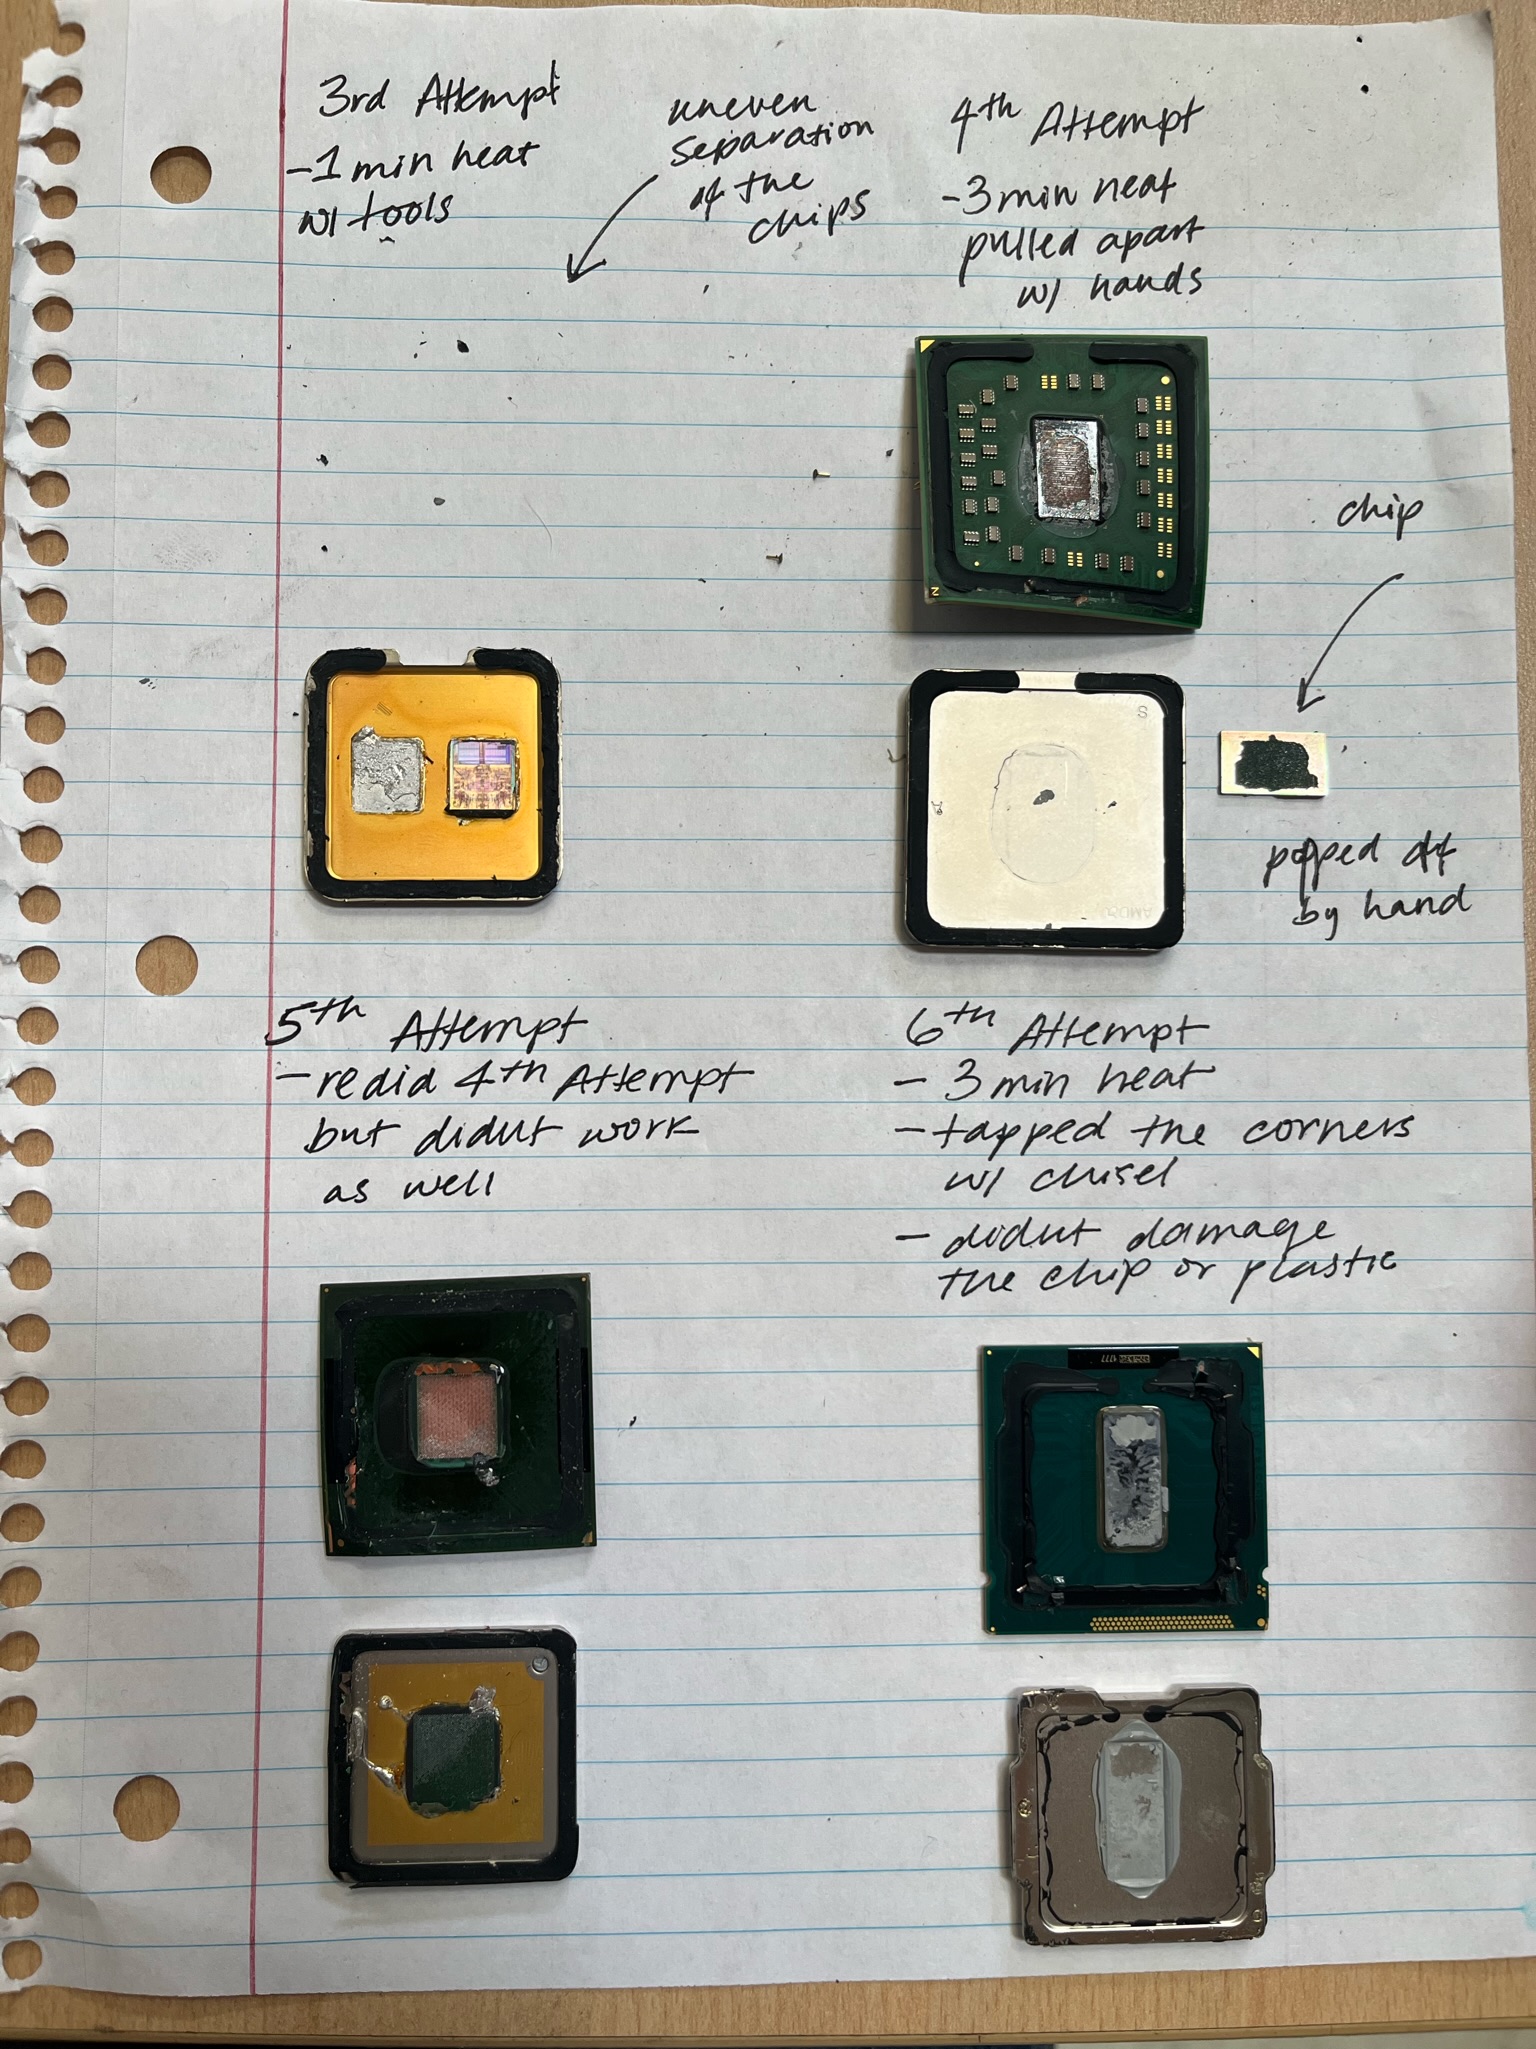 3rd Attempt
- 1 min heat
w/ tools
uneven
separation
of the
chips
4th Attempt
- 3 min heat
pulled apart
w/ hands
chip
popped off
by hand
5th Attempt
- redid 4th Attempt
but didnt work
as well
6th Attempt
- 3 min heat
- tapped the corners
w/ chisel
- didnt damage
the chip or plastic